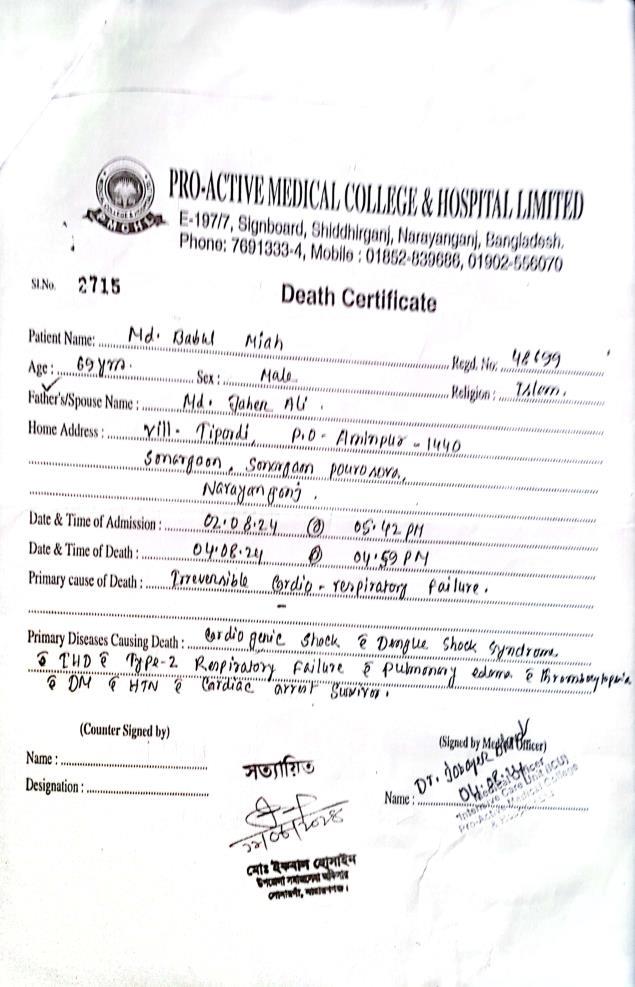 PRO-ACTIVE MEDICAL COLLEGE & HOSPITAL LIMITED
E-197/7, Signboard, Shiddhirganj, Narayanganj, Bangladesh.
Phone: 7691333-4, Mobile : 01852-839686, 01902-556070
Sl.No. 2715
Death Certificate
Patient Name: Md. Babul Miah Regd. No: 48699
Age : 69 yrs. Sex : Male Religion : Islam.
Father's/Spouse Name : Md. Ali.
Home Address : Vill- Tipordi, P.O - Aminpur - 1440
Sonargaon, Sonargaon pourosova,
Narayangonj.
Date & Time of Admission : 02.08.24 @ 05.42 PM
Date & Time of Death : 04.08.24 @ 04.59 PM
Primary cause of Death : Irreversible Cardio - respiratory failure.
Primary Diseases Causing Death : Cardiogenic shock c̄ Dengue shock syndrome
c̄ IHD c̄ Type-2 Respiratory Failure c̄ pulmonary edema c̄ thrombocytopenia
c̄ DM c̄ HTN c̄ Cardiac arrest survivor.
(Counter Signed by)
Name :
Designation :
সত্যায়িত
মোঃ ইকবাল হোসাইন
উপজেলা সমাজসেবা অফিসার
(Signed by Medical Officer)
Name : Dr.
Intensive Care Unit (ICU)
Pro-Active Medical College